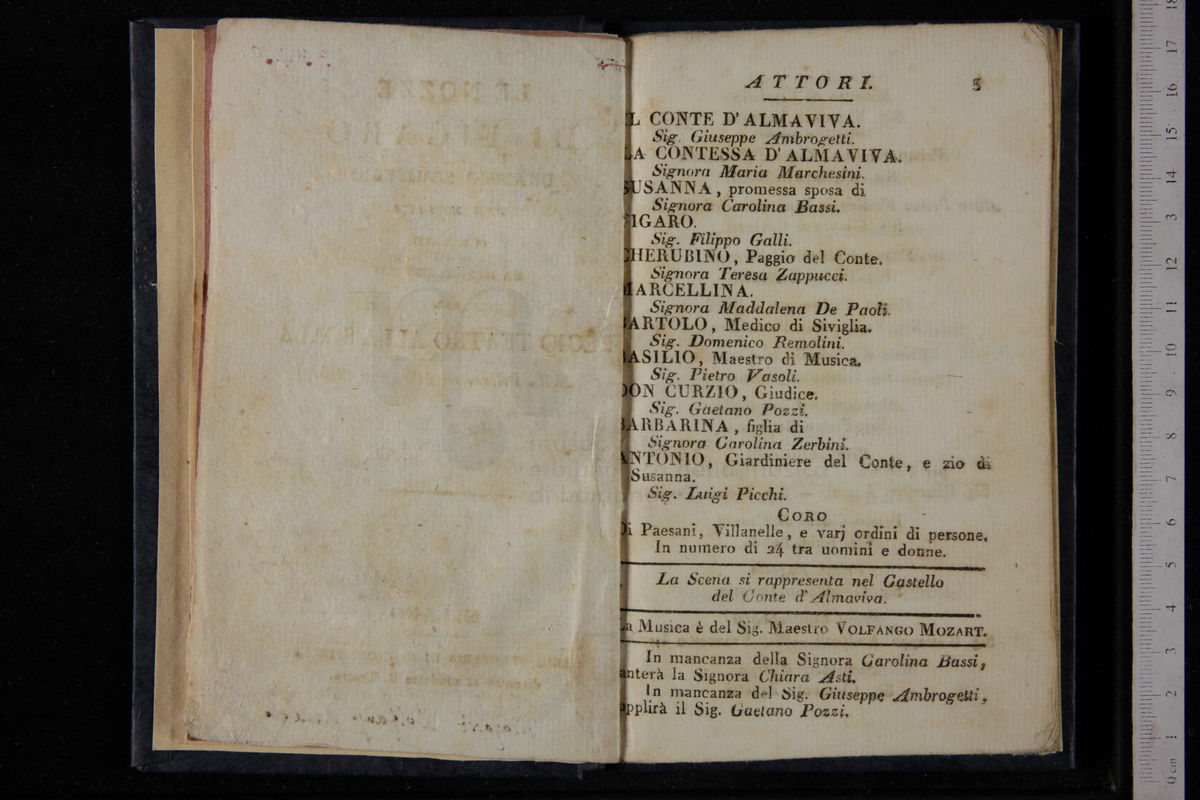 ATTORI. 3
IL CONTE D'ALMAVIVA.
Sig. Giuseppe Ambrogetti.
LA CONTESSA D'ALMAVIVA.
Signora Maria Marchesini.
SUSANNA, promessa sposa di
Signora Carolina Bassi.
FIGARO.
Sig. Filippo Galli.
CHERUBINO, Paggio del Conte.
Signora Teresa Zappucci.
MARCELLINA.
Signora Maddalena De Paoli.
BARTOLO, Medico di Siviglia.
Sig. Domenico Remolini.
BASILIO, Maestro di Musica.
Sig. Pietro Vasoli.
DON CURZIO, Giudice.
Sig. Gaetano Pozzi.
BARBARINA, figlia di
Signora Carolina Zerbini.
ANTONIO, Giardiniere del Conte, e zio di
Susanna.
Sig. Luigi Picchi.
CORO
Di Paesani, Villanelle, e varj ordini di persone.
In numero di 24 tra uomini e donne.
La Scena si rappresenta nel Castello
del Conte d'Almaviva.
La Musica è del Sig. Maestro VOLFANGO MOZART.
In mancanza della Signora Carolina Bassi,
anterà la Signora Chiara Asti.
In mancanza del Sig. Giuseppe Ambrogetti,
pplirà il Sig. Gaetano Pozzi.